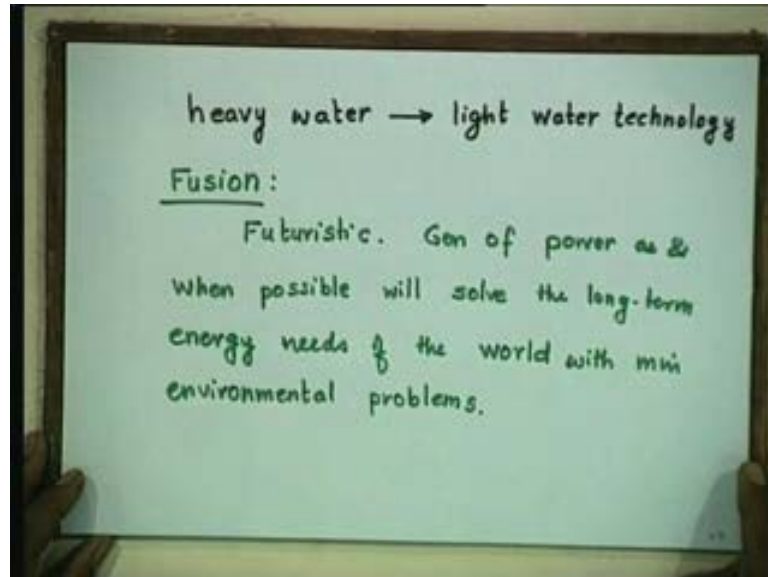 heavy water → light water technology
Fusion :
Futuristic. Gen of power as &
when possible will solve the long-term
energy needs of the world with min
environmental problems.